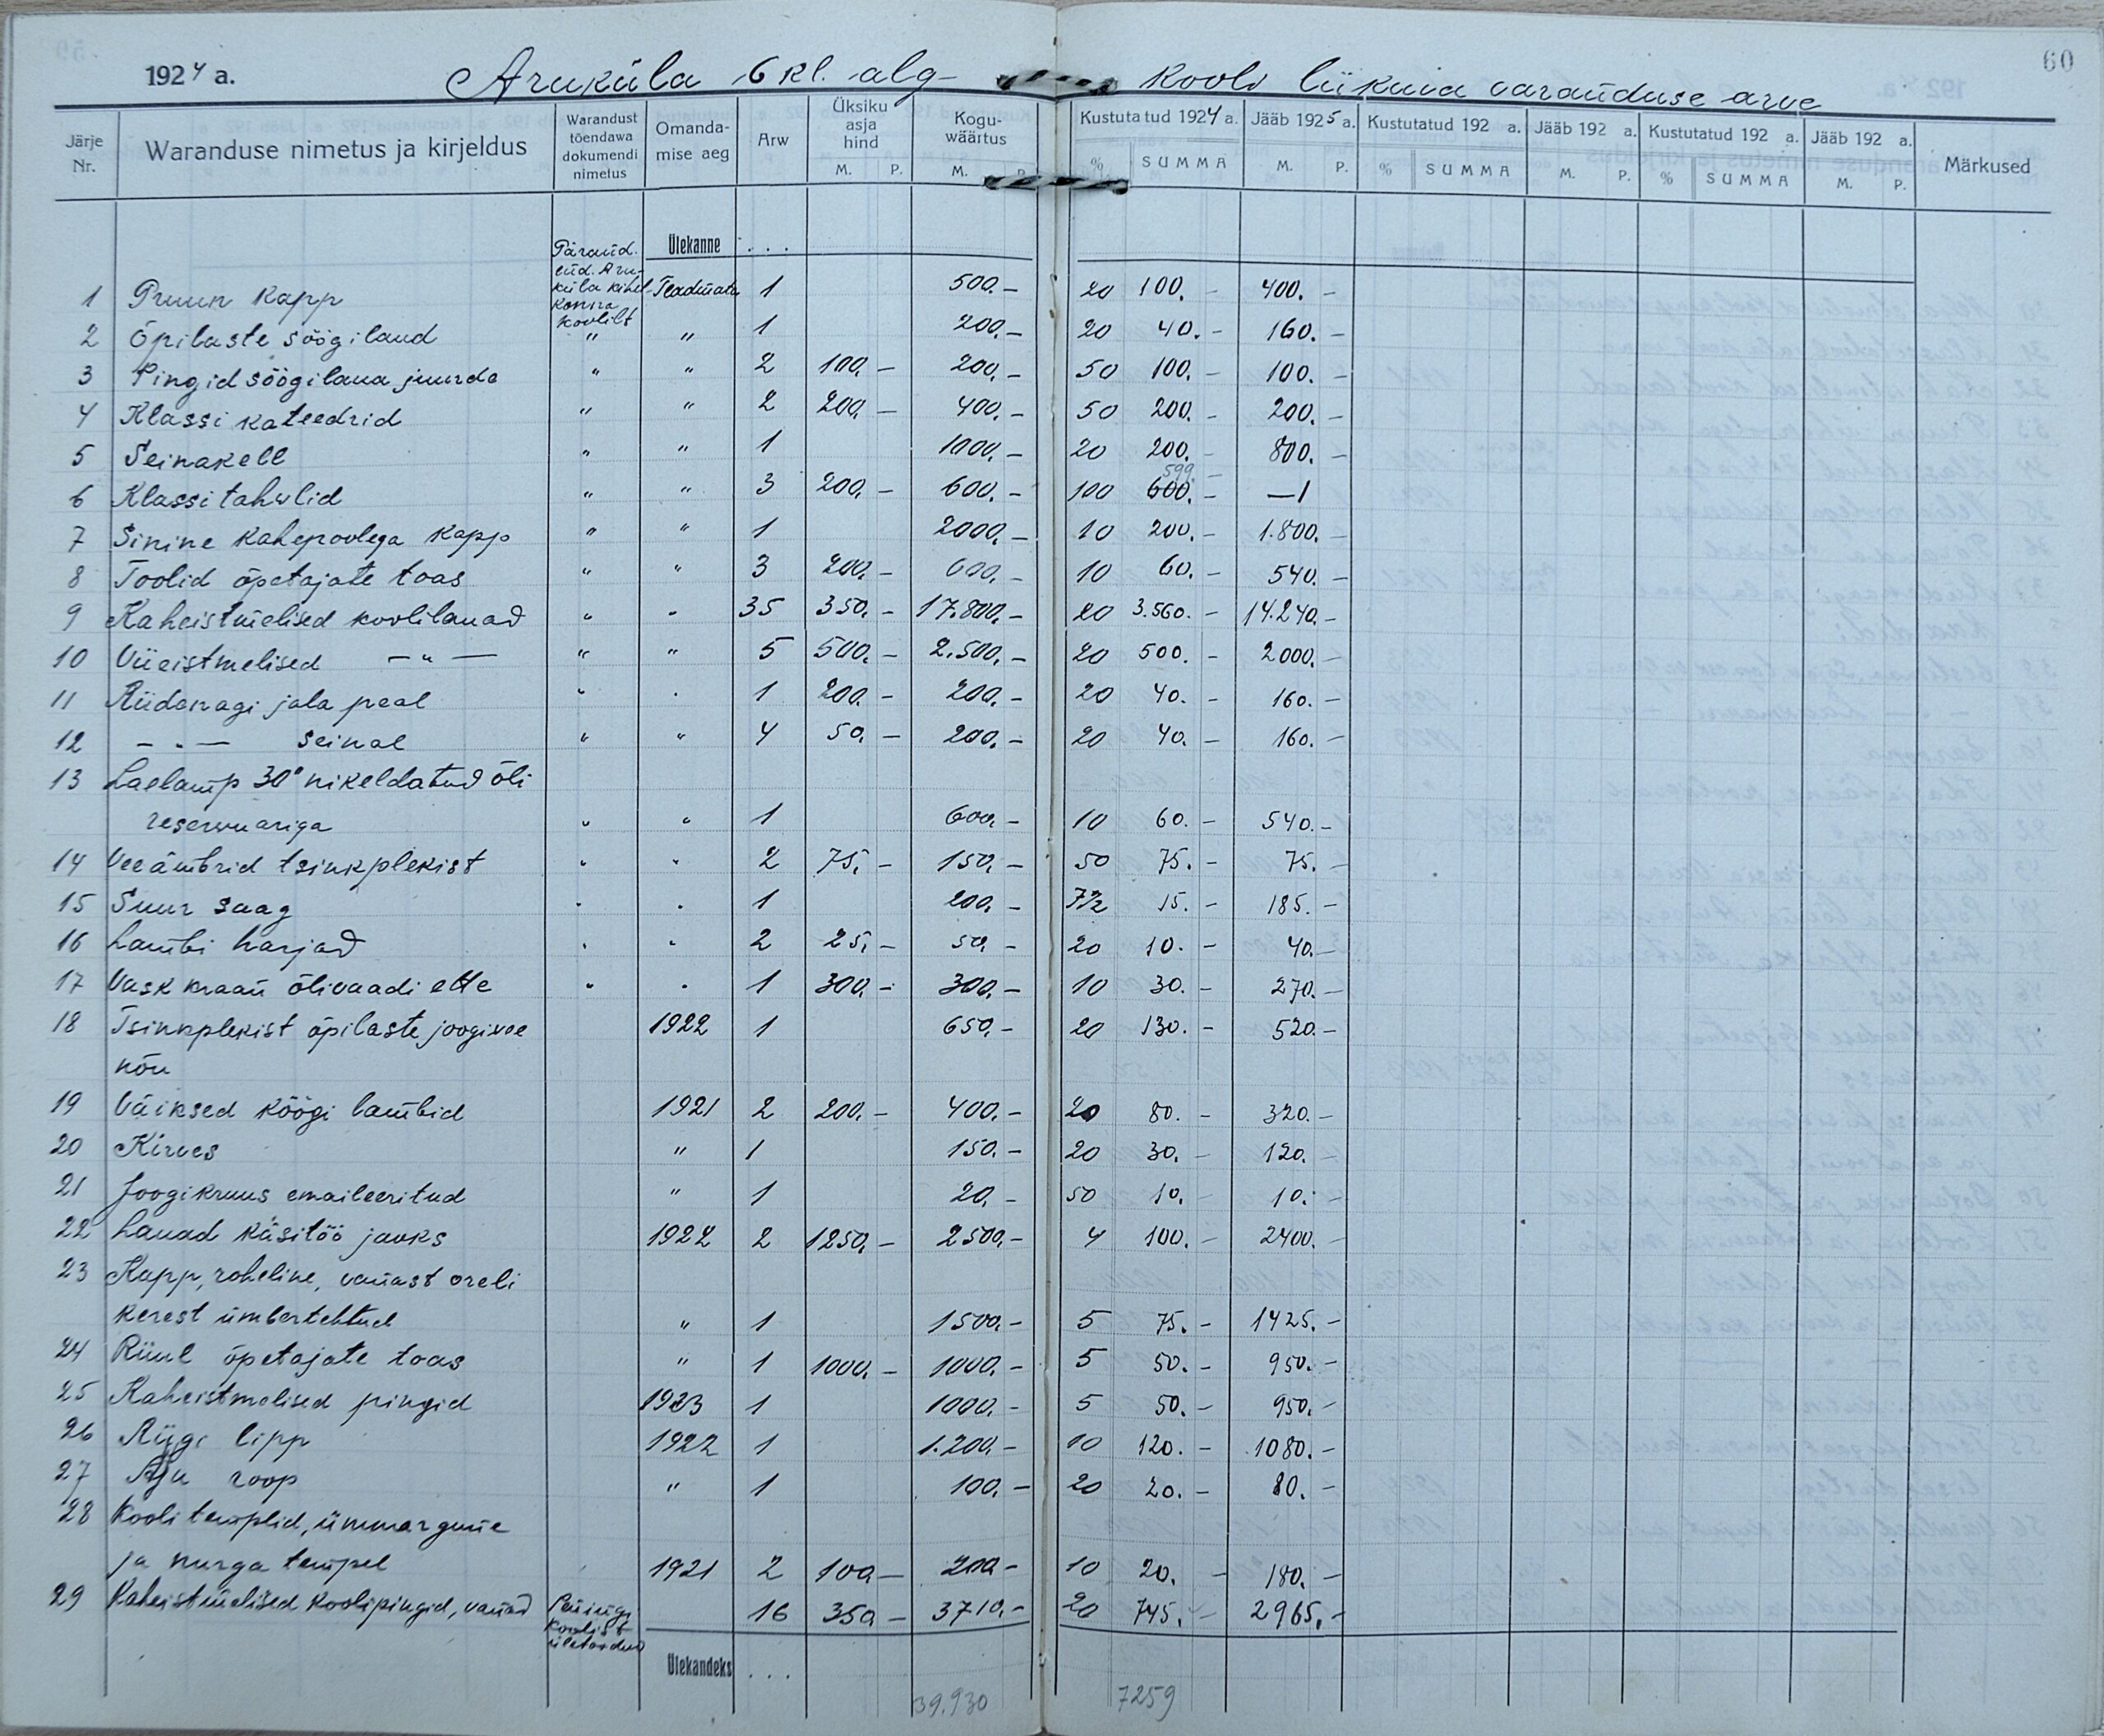 60
1924 a. Aruküla 6 kl. alg- kooli liikuva varanduse arve
Järje Nr. Waranduse nimetus ja kirjeldus Warandust tõendawa dokumendi nimetus Omandamise aeg Arw Üksiku asja hind M. P. Koguwäärtus M. P. Kustutatud 1924 a. % SUMMA Jääb 1925 a. M. P. Kustutatud 192 a. % SUMMA Jääb 192 a. M. P. Kustutatud 192 a. % SUMMA Jääb 192 a. M. P. Märkused
Ülekanne . . .
1 Pruun kapp Teadmata 1 500.- 20 100.- 400.-
2 Õpilaste söögilaud " " 1 200.- 20 40.- 160.-
3 Pingid söögilaua juurde " " 2 100.- 200.- 50 100.- 100.-
4 Klassi kateedrid " " 2 200.- 400.- 50 200.- 200.-
5 Seinakell " " 1 1000.- 20 200.- 800.-
599.-
6 Klassitahwlid " " 3 200.- 600.- 100 600.- —1
7 Sinine kahepoolega kapp " " 1 2000.- 10 200.- 1.800.-
8 Toolid õpetajate toas " " 3 200.- 600.- 10 60.- 540.-
9 Kaheistmelised koolilauad " " 35 350.- 17.800.- 20 3.560.- 14.240.-
10 Viieistmelised —"— " " 5 500.- 2.500.- 20 500.- 2000.-
11 Riidenagi jala peal " " 1 200.- 200.- 20 40.- 160.-
12 —"— seinal " " 4 50.- 200.- 20 40.- 160.-
13 Laelamp 30" nikeldatud õli
reservuariga " " 1 600.- 10 60.- 540.-
14 Veeämbrid tsinkplekist " " 2 75.- 150.- 50 75.- 75.-
15 Suur saag " " 1 200.- 7½ 15.- 185.-
16 Lambi harjad " " 2 25.- 50.- 20 10.- 40.-
17 Vask kraan õlivaadi ette " " 1 300.- 300.- 10 30.- 270.-
18 Tsinkplekist õpilaste joogivee 1922 1 650.- 20 130.- 520.-
nõu
19 Väiksed köögi lambid 1921 2 200.- 400.- 20 80.- 320.-
20 Kirves " 1 150.- 20 30.- 120.-
21 Joogikruus emaileeritud " 1 20.- 50 10.- 10.-
22 Lauad käsitöö jaoks 1922 2 1250.- 2500.- 4 100.- 2400.-
23 Kapp, roheline, vanast oreli
kerest ümbertehtud " 1 1500.- 5 75.- 1425.-
24 Riiul õpetajate toas " 1 1000.- 1000.- 5 50.- 950.-
25 Kaheistmelised pingid 1923 1 1000.- 5 50.- 950.-
26 Riigi lipp 1922 1 1.200.- 10 120.- 1080.-
27 Ahju roop " 1 100.- 20 20.- 80.-
28 Kooli templid, ümmargune
ja nurga tempel 1921 2 100.- 200.- 10 20.- 180.-
29 Kaheistmelised koolipingid, vanad Peningi koolist ületoodud 16 350.- 3710.- 20 745.- 2965.-
Ülekandeks . . .
39.930 7259